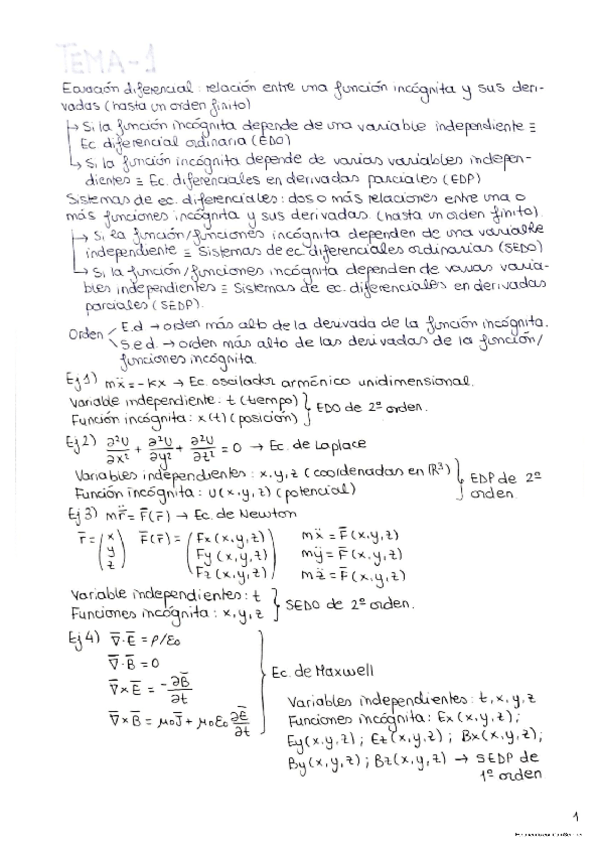 TEMA-1
Ecuación diferencial: relación entre una función incógnita y sus deri-
vadas (hasta un orden finito)
↳ Si la función incógnita depende de una variable independiente ≡
Ec diferencial ordinaria (EDO)
↳ Si la función incógnita depende de varias variables indepen-
dientes ≡ Ec. diferenciales en derivadas parciales (EDP)
Sistemas de ec. diferenciales: dos o más relaciones entre una o
más funciones incógnita y sus derivadas. (hasta un orden finito).
↳ Si la función/funciones incógnita dependen de una variable
independiente ≡ Sistemas de ec diferenciales ordinarias (SEDO)
↳ Si la función/funciones incógnita dependen de varias varia-
bles independientes ≡ Sistemas de ec. diferenciales en derivadas
parciales (SEDP).
Orden < E.d → orden más alto de la derivada de la función incógnita.
S.e.d. → orden más alto de las derivadas de la función/
funciones incógnita.
Ej 1) mẍ = -kx → Ec. oscilador armónico unidimensional.
Variable independiente: t (tiempo)
Función incógnita: x(t) (posición) } EDO de 2º orden.
Ej 2) ∂²U/∂x² + ∂²U/∂y² + ∂²U/∂z² = 0 → Ec. de Laplace
Variables independientes: x, y, z (coordenadas en ℝ³)
Función incógnita: U(x, y, z) (potencial) } EDP de 2º orden.
Ej 3) mr̈̄ = F̄(r̄) → Ec. de Newton
r̄ = (x y z) F̄(r̄) = (Fx(x,y,z) Fy(x,y,z) Fz(x,y,z))
mẍ = F̄(x,y,z)
mÿ = F̄(x,y,z)
mz̈ = F̄(x,y,z)
Variable independientes: t
Funciones incógnita: x, y, z } SEDO de 2º orden.
Ej 4) ∇̄·Ē = ρ/ε₀
∇̄·B̄ = 0
∇̄×Ē = -∂B̄/∂t
∇̄×B̄ = μ₀J̄ + μ₀ε₀ ∂Ē/∂t
} Ec. de Maxwell
Variables independientes: t, x, y, z
Funciones incógnita: Ex(x,y,z);
Ey(x,y,z); Ez(x,y,z); Bx(x,y,z);
By(x,y,z); Bz(x,y,z) → SEDP de
1º orden
1